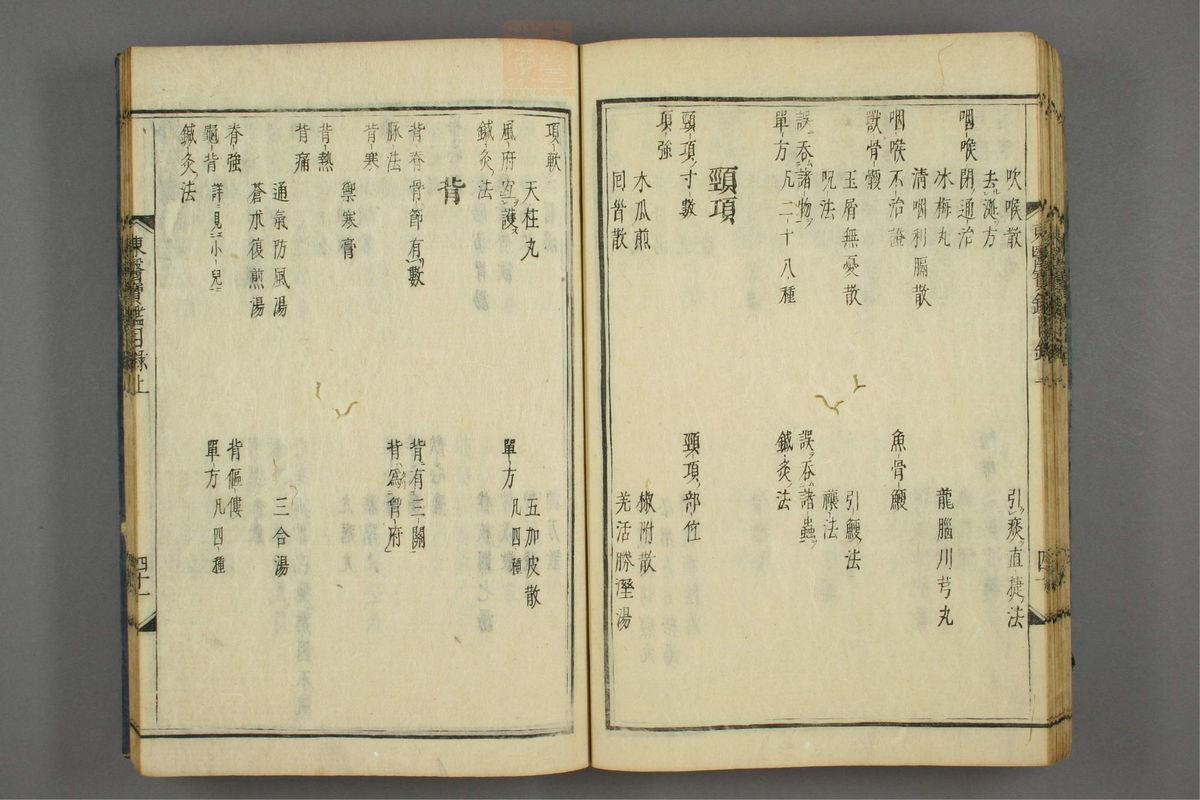 吹喉散
引痰直捷法
去涎方
咽喉閉通治
氷梅丸
龍腦川芎丸
清咽利膈散
咽喉不治證
魚骨鯁
獸骨鯁
玉屑無憂散
引鯁法
呪法
禳法
誤吞諸物
誤吞諸蟲
單方 凡二十八種
鍼灸法
頸項
頸項寸數
頸項部位
項強
木瓜煎
椒附散
回首散
羌活勝濕湯
項軟
天柱丸
五加皮散
風府宜護
單方 凡四種
鍼灸法
背
背脊骨節有數
背有三關
脉法
背爲胷府
背寒
禦寒膏
背熱
背痛
通氣防風湯
三合湯
蒼朮復煎湯
脊強
背傴僂
龜背 詳見小兒
單方 凡四種
鍼灸法
東醫寶鑑目錄上
四十一